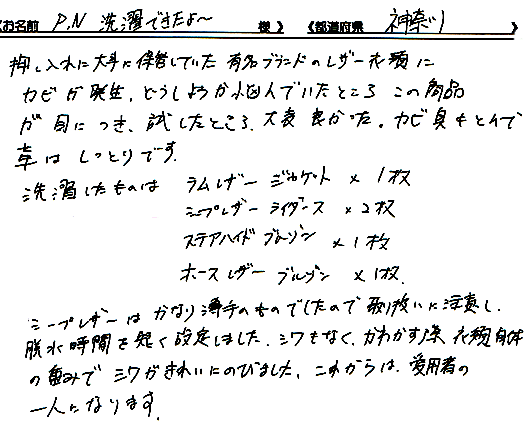 お名前 P.N 洗濯できたよ〜 様》 《都道府県 神奈川 》
押し入れに大事に保管していた有名ブランドのレザー衣類に
カビが発生、どうしようか悩んでいたところ この商品
が目につき、試したところ、大変良かった。カビ臭もとんで
革はしっとりです。
洗濯したものは ラムレザー ジャケット × 1枚
シープレザー ライダース × 2枚
ステアハイド ブルゾン × 1枚
ホースレザー ブルゾン × 1枚.
シープレザーはかなり薄手のものでしたので取り扱いに注意し、
脱水時間を短く設定しました。シワもなく、かわかす際 衣類自体
の重みでシワがきれいにのびました。これからは、愛用者の
一人になります。